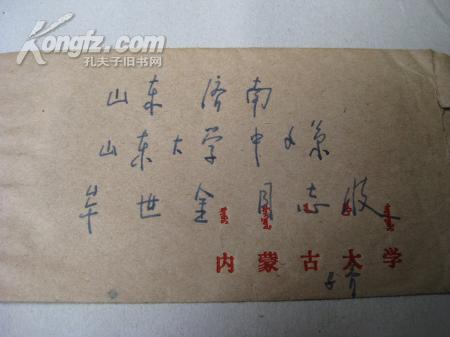 Kongfz.com
孔夫子旧书网
山东 济南
山东大学中文系
牟世金同志收
内蒙古大学